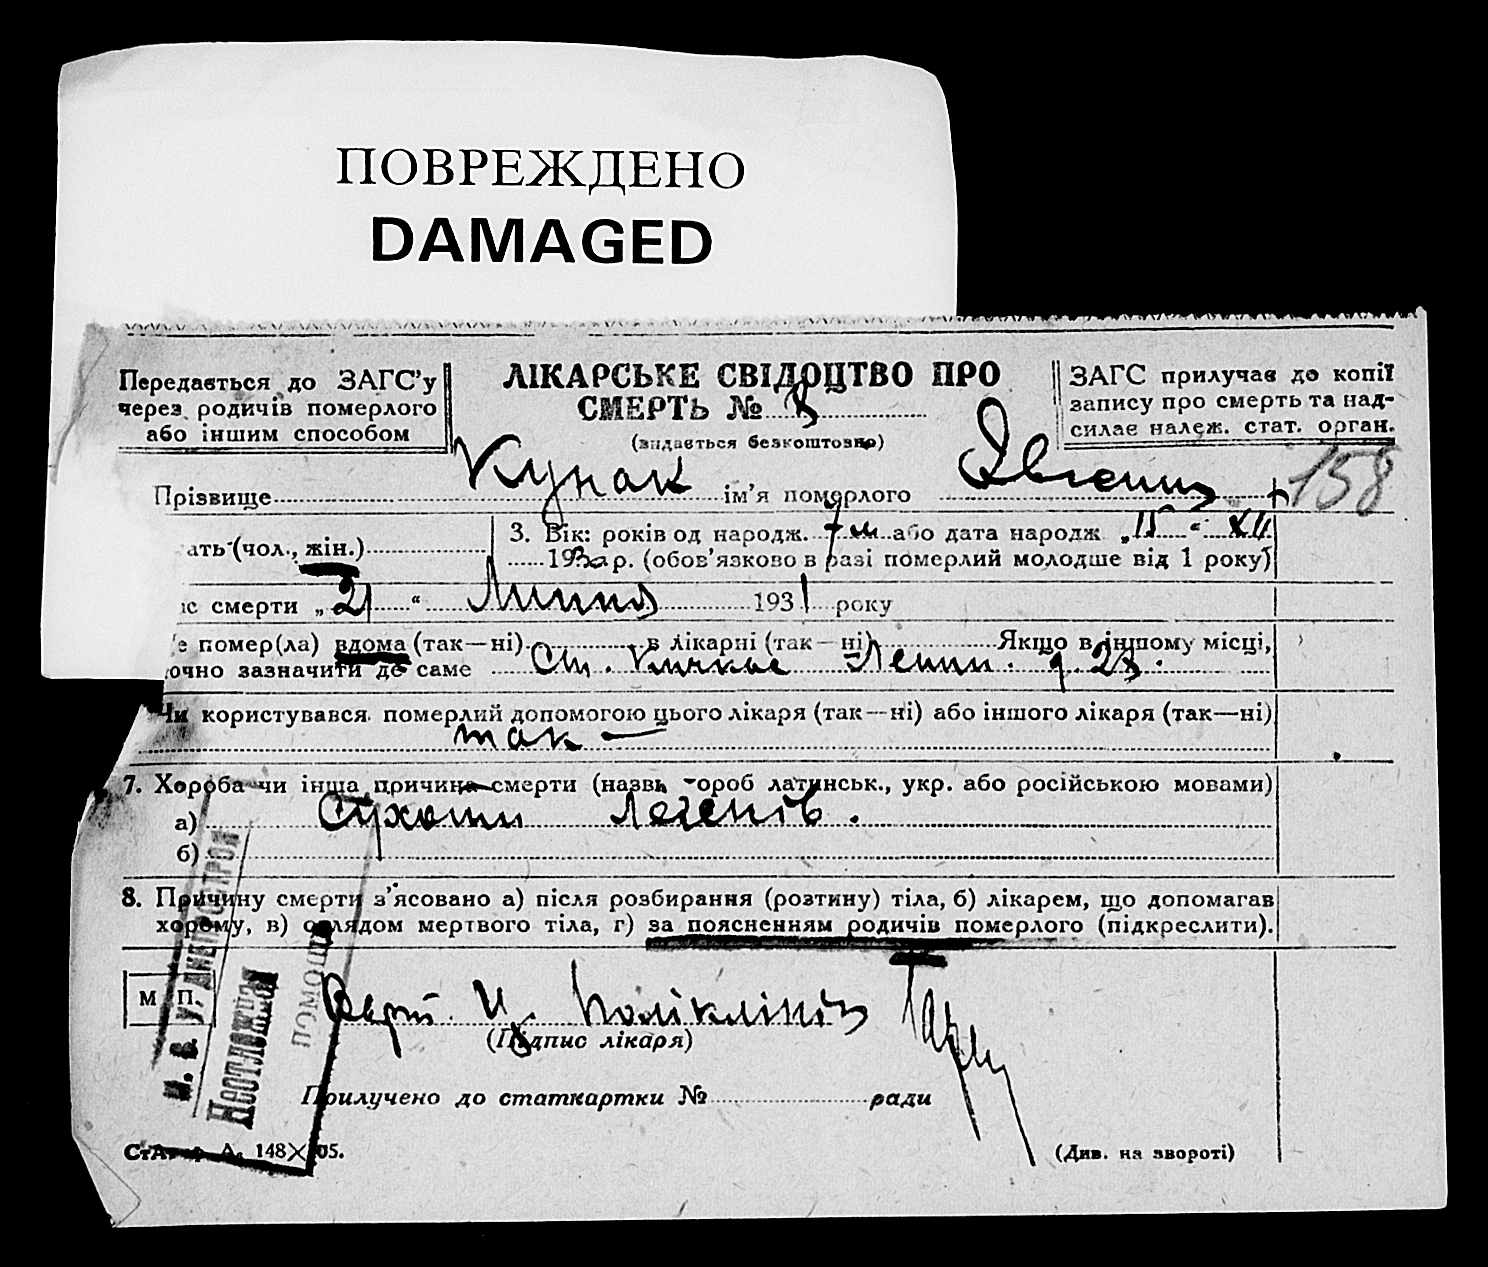 ПОВРЕЖДЕНО
DAMAGED
Передається до ЗАГС'у
через родичів померлого
або іншим способом
ЛІКАРСЬКЕ СВІДОЦТВО ПРО
СМЕРТЬ № 8
(видається безкоштовно)
ЗАГС прилучає до копії
запису про смерть та над-
силає належ. стат. орган.
158
Прізвище Кунак ім'я померлого
ать (чол., жін.)
3. Вік: років од народж. 7 м або дата народж „15“ XII
193 р. (обов'язково в разі померлий молодше від 1 року)
ас смерти „21“ 1931 року
е помер(ла) вдома (так—ні) в лікарні (так—ні) Якщо в іншому місці,
очно зазначити де саме Ст. Кичкас Ленин. 28.
Чи користувався померлий допомогою цього лікаря (так—ні) або іншого лікаря (так—ні)
так —
7. Хороба чи інша причина смерти (назви хороб латинськ., укр. або російською мовами)
а) Сухоти легенів.
б)
8. Причину смерти з'ясовано а) після розбирання (розтину) тіла, б) лікарем, що допомагав
хорому, в) оглядом мертвого тіла, г) за поясненням родичів померлого (підкреслити).
М. П.
поліклініки
(Підпис лікаря)
Прилучено до статкартки № ради
А. 148 X 105.
(Див. на звороті)
У. ДНЕПРОСТРОЯ
Неотложная
ПОМОЩЬ